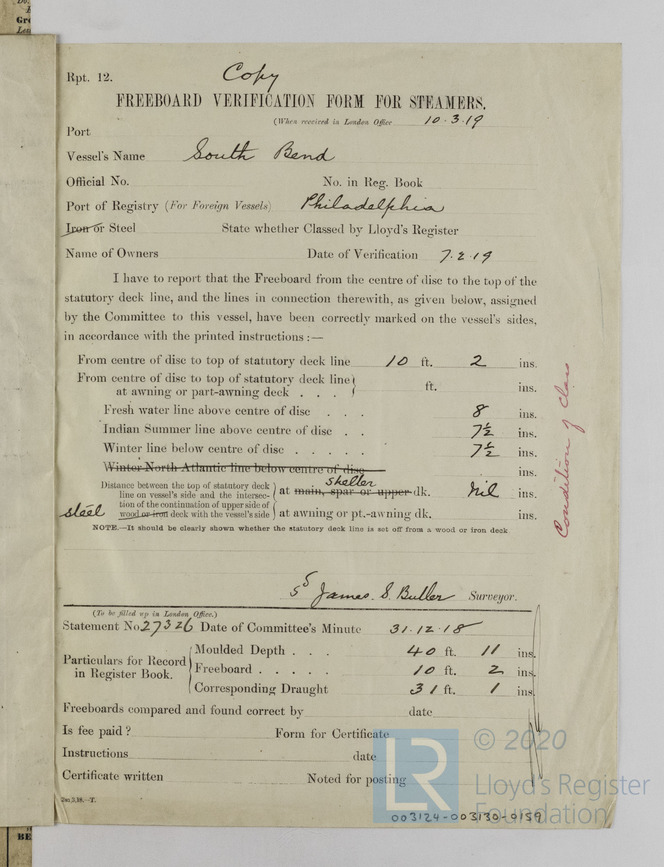 Rpt. 12. Copy
FREEBOARD VERIFICATION FORM FOR STEAMERS.
(When received in London Office 10.3.19
Port
Vessel's Name South Bend
Official No. No. in Reg. Book
Port of Registry (For Foreign Vessels) Philadelphia
Iron or Steel State whether Classed by Lloyd's Register
Name of Owners Date of Verification 7.2.19
I have to report that the Freeboard from the centre of disc to the top of the
statutory deck line, and the lines in connection therewith, as given below, assigned
by the Committee to this vessel, have been correctly marked on the vessel's sides,
in accordance with the printed instructions :—
From centre of disc to top of statutory deck line 10 ft. 2 ins.
From centre of disc to top of statutory deck line
at awning or part-awning deck . . . ft. ins.
Fresh water line above centre of disc . . . 8 ins.
Indian Summer line above centre of disc . . 7½ ins.
Winter line below centre of disc . . . . . 7½ ins.
Winter North Atlantic line below centre of disc ins.
Distance between the top of statutory deck
line on vessel's side and the intersec-
tion of the continuation of upper side of
steel wood or iron deck with the vessel's side
shelter
at main, spar or upper dk. Nil ins.
at awning or pt.-awning dk. ins.
NOTE.—It should be clearly shown whether the statutory deck line is set off from a wood or iron deck.
Condition of Class
James. S. Butler Surveyor.
(To be filled up in London Office.)
Statement No 27326 Date of Committee's Minute 31.12.18
Particulars for Record
in Register Book.
Moulded Depth . . . 40 ft. 11 ins.
Freeboard . . . . . 10 ft. 2 ins.
Corresponding Draught 31 ft. 1 ins.
Freeboards compared and found correct by date
Is fee paid? Form for Certificate
Instructions date
Certificate written Noted for posting
LR
© 2020
Lloyd's Register
Foundation
003124-003130-0159